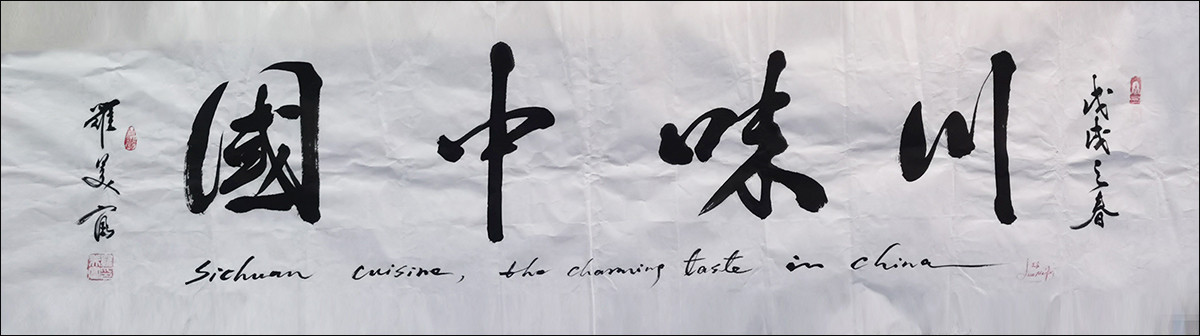 戊戌之春
川味中國
羅美富
Sichuan cuisine, the charming taste in china